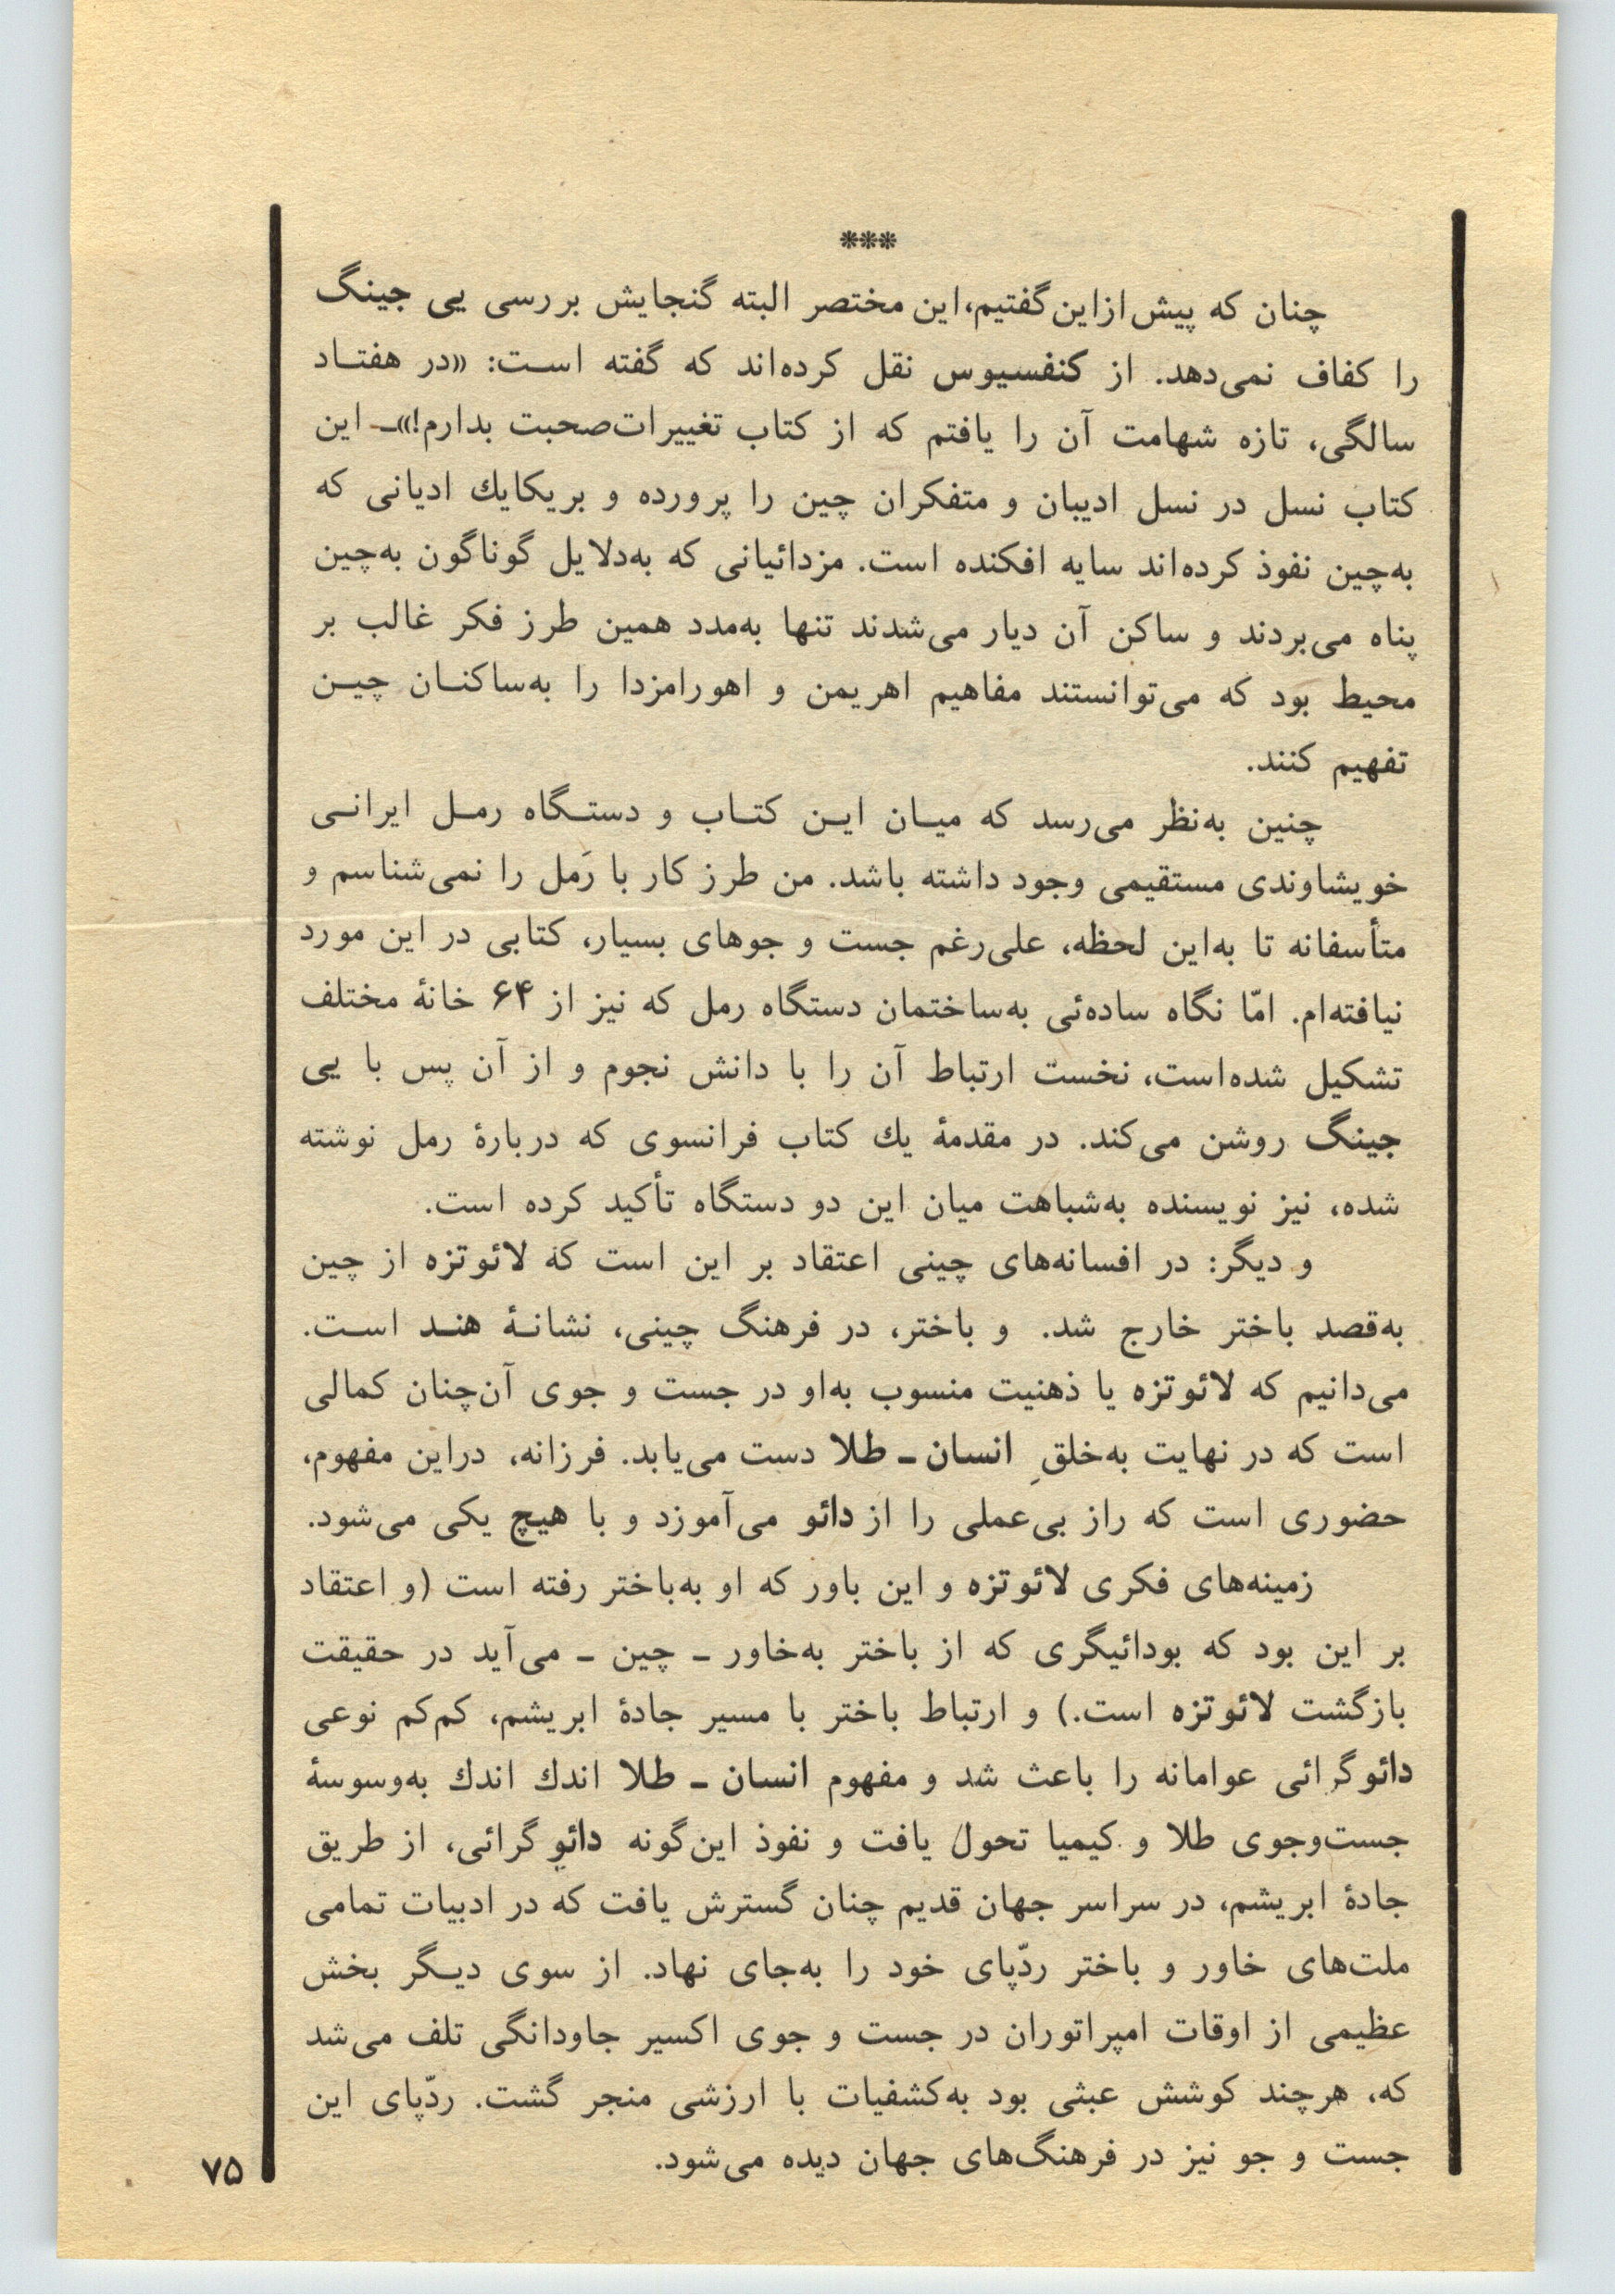 ***
چنان که پیش از این گفتیم، این مختصر البته گنجایش بررسی یی جینگ
را کفاف نمی‌دهد. از کنفسیوس نقل کرده‌اند که گفته است: «در هفتاد
سالگی، تازه شهامت آن را یافتم که از کتاب تغییرات صحبت بدارم!»ـ این
کتاب نسل در نسل ادیبان و متفکران چین را پرورده و بر یکایك ادیانی که
به‌چین نفوذ کرده‌اند سایه افکنده است. مزدائیانی که به‌دلایل گوناگون به‌چین
پناه می‌بردند و ساکن آن دیار می‌شدند تنها به‌مدد همین طرز فکر غالب بر
محیط بود که می‌توانستند مفاهیم اهریمن و اهورامزدا را به‌ساکنان چین
تفهیم کنند.
چنین به‌نظر می‌رسد که میان این کتاب و دستگاه رمل ایرانی
خویشاوندی مستقیمی وجود داشته باشد. من طرز کار با رَمل را نمی‌شناسم و
متأسفانه تا به‌این لحظه، علی‌رغم جست و جوهای بسیار، کتابی در این مورد
نیافته‌ام. امّا نگاه ساده‌ئی به‌ساختمان دستگاه رمل که نیز از ۶۴ خانهٔ مختلف
تشکیل شده‌است، نخست ارتباط آن را با دانش نجوم و از آن پس با یی
جینگ روشن می‌کند. در مقدمهٔ یك کتاب فرانسوی که دربارهٔ رمل نوشته
شده، نیز نویسنده به‌شباهت میان این دو دستگاه تأکید کرده است.
و دیگر: در افسانه‌های چینی اعتقاد بر این است که لائوتزه از چین
به‌قصد باختر خارج شد. و باختر، در فرهنگ چینی، نشانهٔ هند است.
می‌دانیم که لائوتزه یا ذهنیت منسوب به‌او در جست و جوی آن‌چنان کمالی
است که در نهایت به‌خلقِ انسان ـ طلا دست می‌یابد. فرزانه، دراین مفهوم،
حضوری است که راز بی‌عملی را از دائو می‌آموزد و با هیچ یکی می‌شود.
زمینه‌های فکری لائوتزه و این باور که او به‌باختر رفته است (و اعتقاد
بر این بود که بودائیگری که از باختر به‌خاور ـ چین ـ می‌آید در حقیقت
بازگشت لائوتزه است.) و ارتباط باختر با مسیر جادهٔ ابریشم، کم‌کم نوعی
دائوگرائی عوامانه را باعث شد و مفهوم انسان ـ طلا اندك اندك به‌وسوسهٔ
جست‌وجوی طلا و کیمیا تحول یافت و نفوذ این‌گونه دائو گرائی، از طریق
جادهٔ ابریشم، در سراسر جهان قدیم چنان گسترش یافت که در ادبیات تمامی
ملت‌های خاور و باختر ردّپای خود را به‌جای نهاد. از سوی دیگر بخش
عظیمی از اوقات امپراتوران در جست و جوی اکسیر جاودانگی تلف می‌شد
که، هرچند کوشش عبثی بود به‌کشفیات با ارزشی منجر گشت. ردّپای این
جست و جو نیز در فرهنگ‌های جهان دیده می‌شود.
۷۵